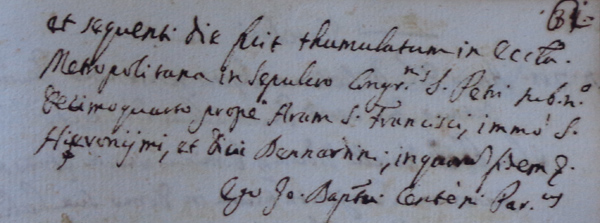 81.
et sequenti die fuit thumulatum in Eccla.
Metropolitana in sepulcro Congr.nis S. Petri sub n.o
decimoquarto prope Aram S. Francisci, immo S.
Hieronijmi, et Divi Bernardini, in quorum fidem &.
Ego Jo. Bapta Centeri Par.us